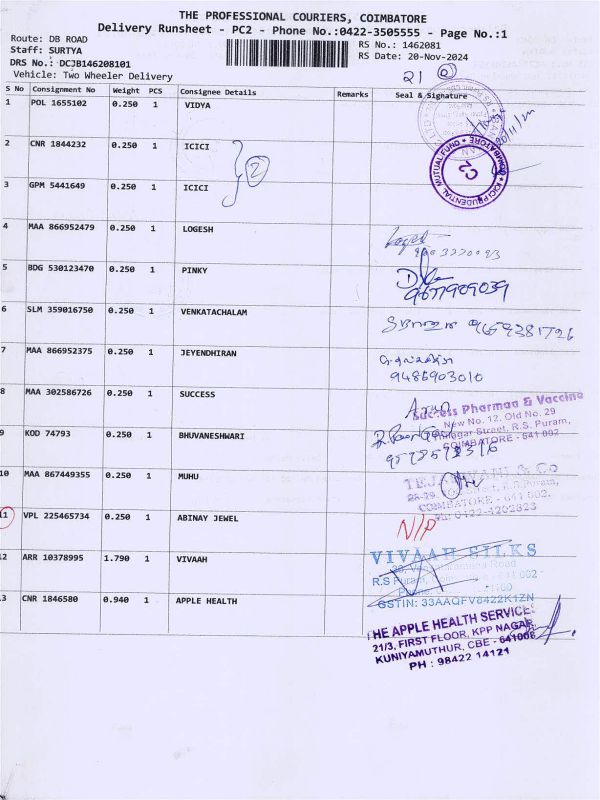 THE PROFESSIONAL COURIERS, COIMBATORE
Delivery Runsheet - PC2 - Phone No.:0422-3505555 - Page No.:1
Route: DB ROAD
Staff: SURTYA
RS No.: 1462081
DRS No.: DCJB146208101
RS Date: 20-Nov-2024
Vehicle: Two Wheeler Delivery
21 2
S No Consignment No Weight PCS Consignee Details Remarks Seal & Signature
1 POL 1655102 0.250 1 VIDYA
2 CNR 1844232 0.250 1 ICICI
2
3 GPM 5441649 0.250 1 ICICI
ICICI PRUDENTIAL MUTUAL FUND * COIMBATORE *
4 MAA 866952479 0.250 1 LOGESH
5 BDG 530123470 0.250 1 PINKY
6 SLM 359016750 0.250 1 VENKATACHALAM
7 MAA 866952375 0.250 1 JEYENDHIRAN
9486903010
8 MAA 302586726 0.250 1 SUCCESS
Arun
Success Pharmaa & Vaccine
New No. 12, Old No. 29
Street, R.S. Puram,
COIMBATORE - 641 002
9 KOD 74793 0.250 1 BHUVANESHWARI
10 MAA 867449355 0.250 1 MUHU
& Co
COIMBATORE - 641 002.
11 VPL 225465734 0.250 1 ABINAY JEWEL
N/P
12 ARR 10378995 1.790 1 VIVAAH
VIVAAH SILKS
Road
R.S Puram,
GSTIN: 33AAQFV8422K1ZN
3 CNR 1846580 0.940 1 APPLE HEALTH
HE APPLE HEALTH SERVICE
21/3, FIRST FLOOR, KPP NAGAR,
KUNIYAMUTHUR, CBE - 641008
PH : 98422 14121